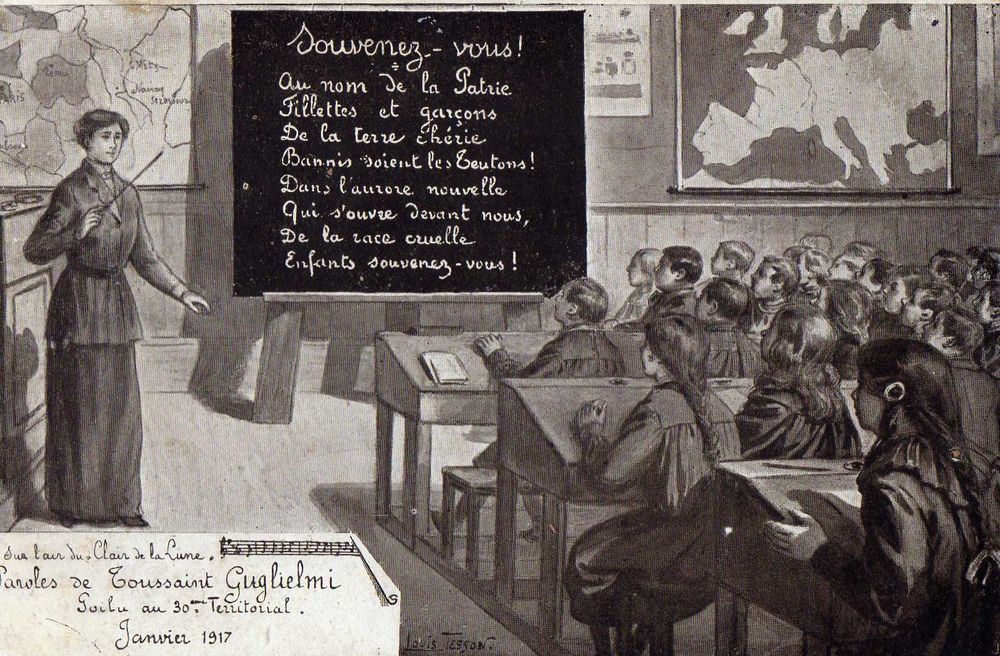 Souvenez-vous!
Au nom de la Patrie
Fillettes et garçons
De la terre chérie
Bannis soient les Teutons!
Dans l'aurore nouvelle
Qui s'ouvre devant nous,
De la race cruelle
Enfants souvenez-vous!
Metz
Nancy
Sur l'air du "Clair de la Lune".
Paroles de Toussaint Guglielmi
Poilu au 30ème Territorial.
Janvier 1917
Louis Tesson.